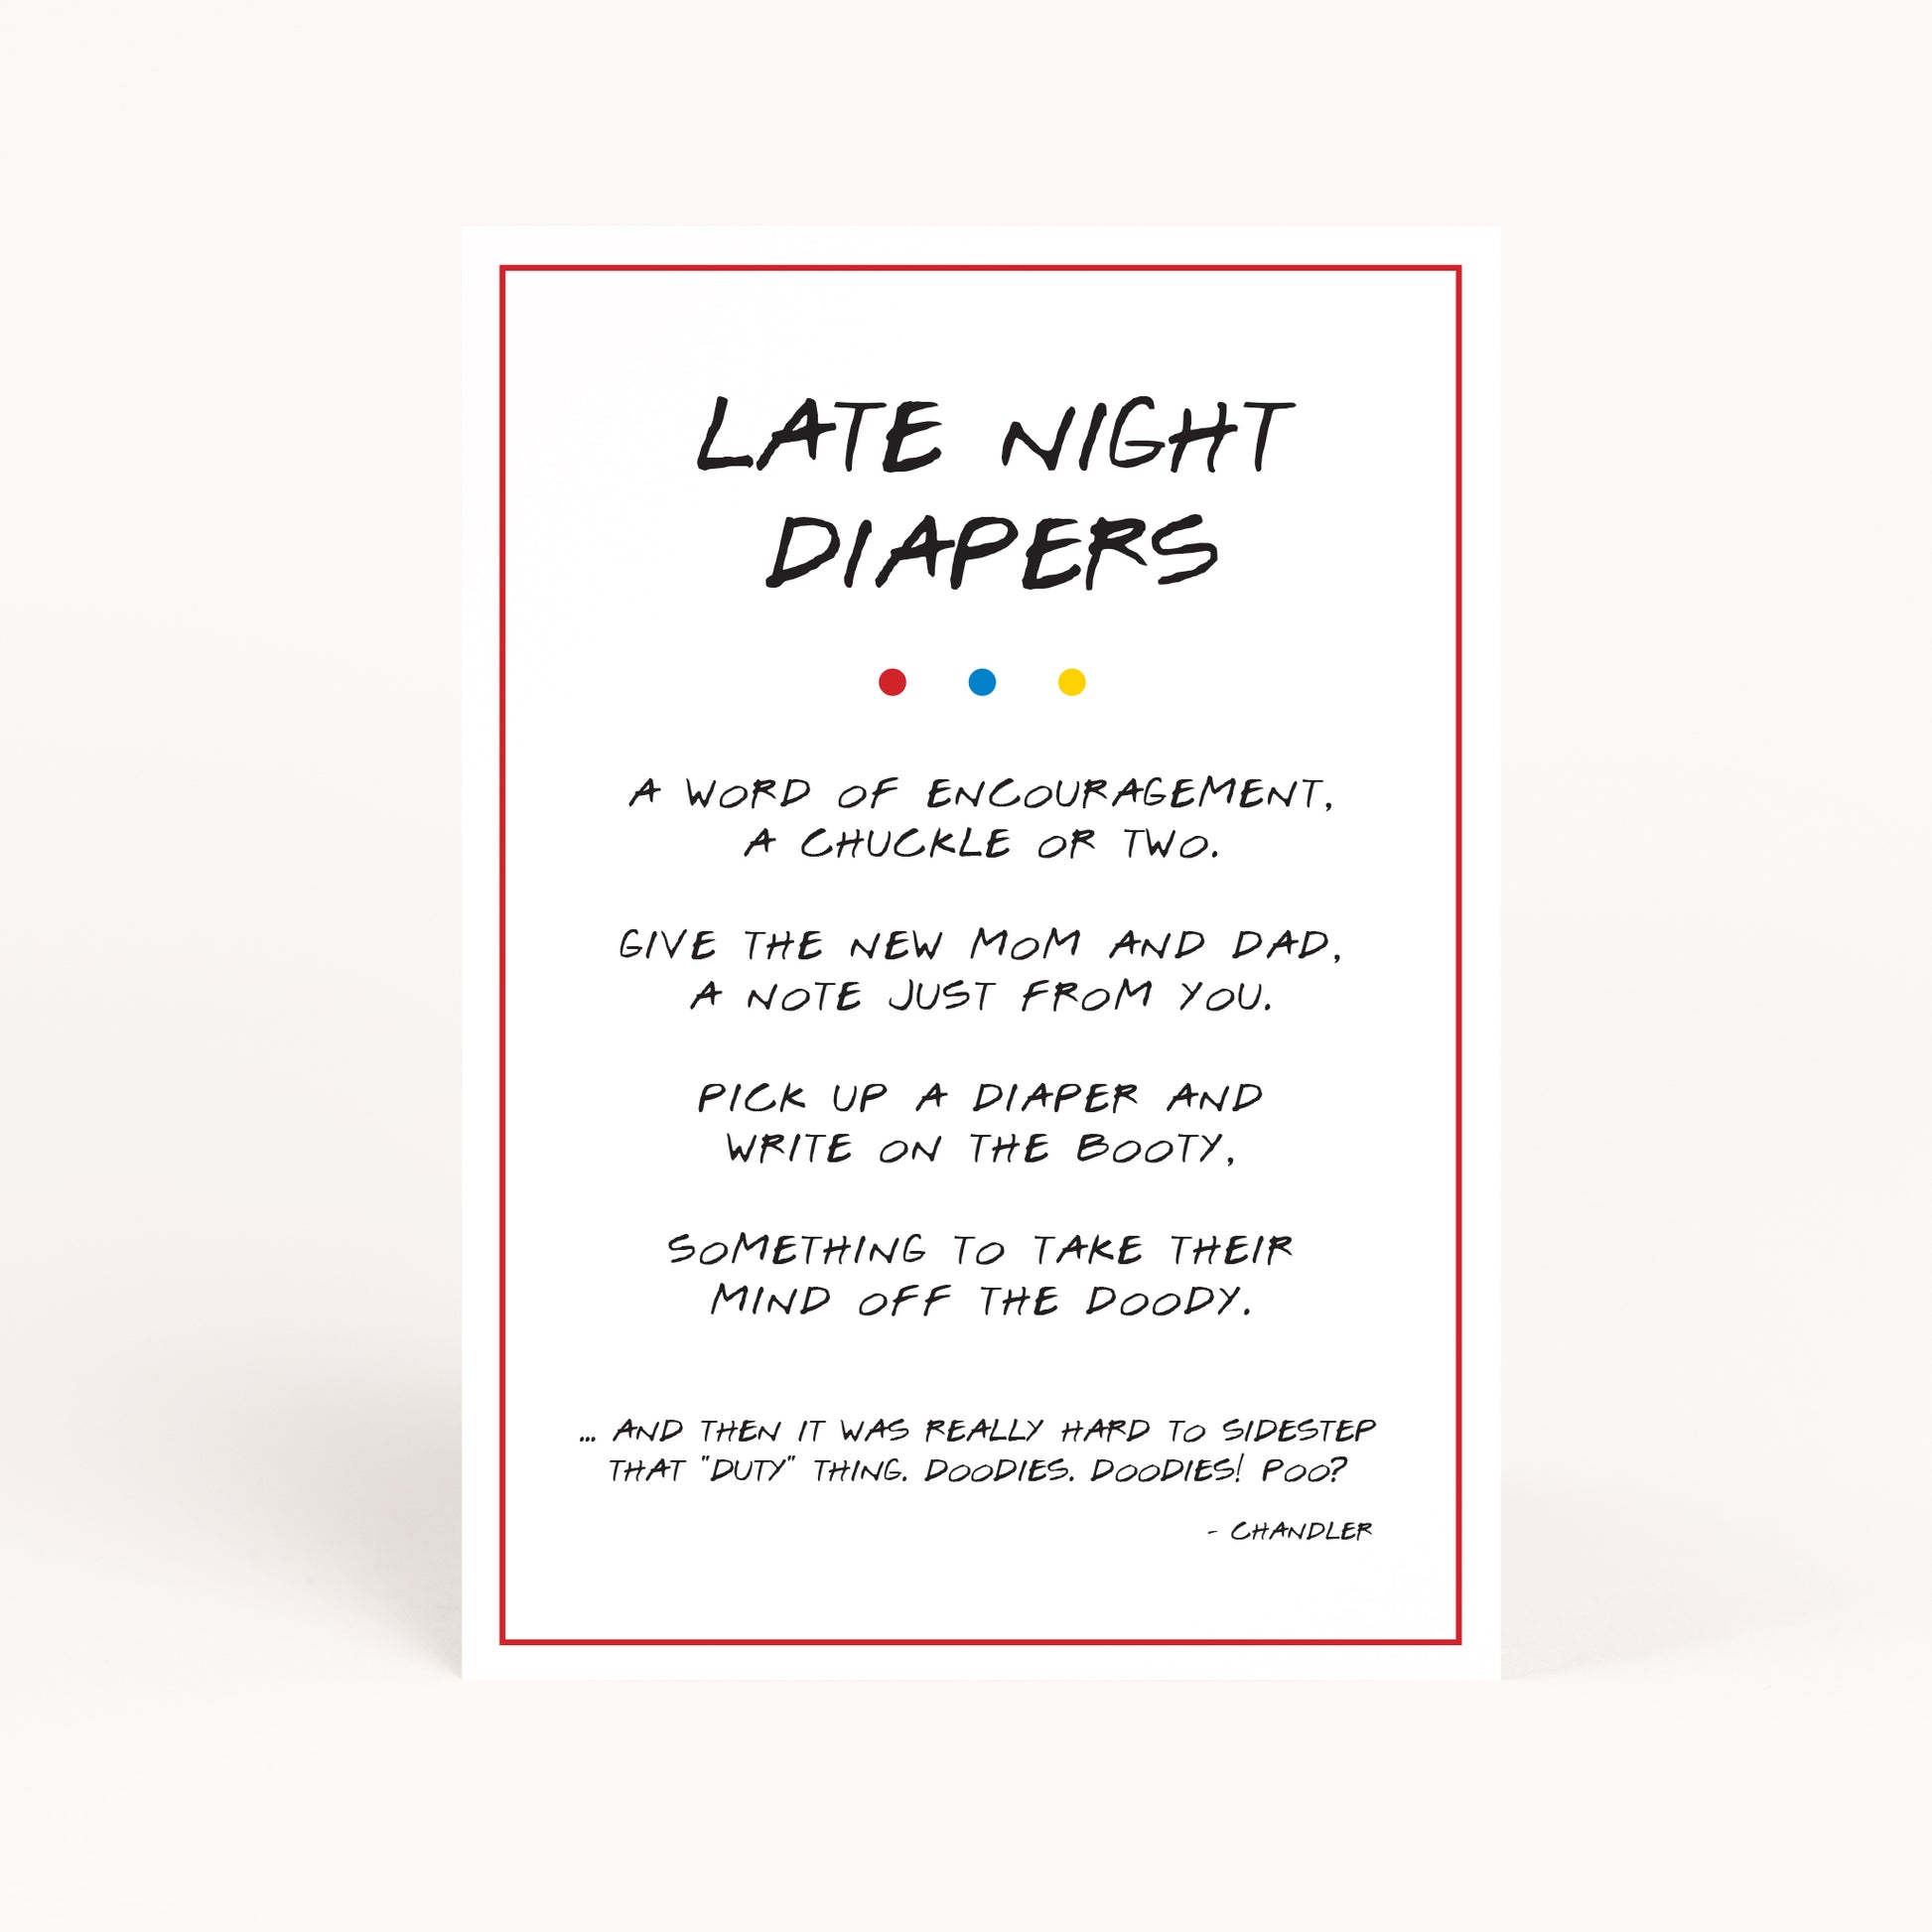 LATE NIGHT
DIAPERS
A WORD OF ENCOURAGEMENT,
A CHUCKLE OR TWO.
GIVE THE NEW MOM AND DAD,
A NOTE JUST FROM YOU.
PICK UP A DIAPER AND
WRITE ON THE BOOTY,
SOMETHING TO TAKE THEIR
MIND OFF THE DOODY.
... AND THEN IT WAS REALLY HARD TO SIDESTEP
THAT "DUTY" THING. DOODIES. DOODIES! POO?
- CHANDLER